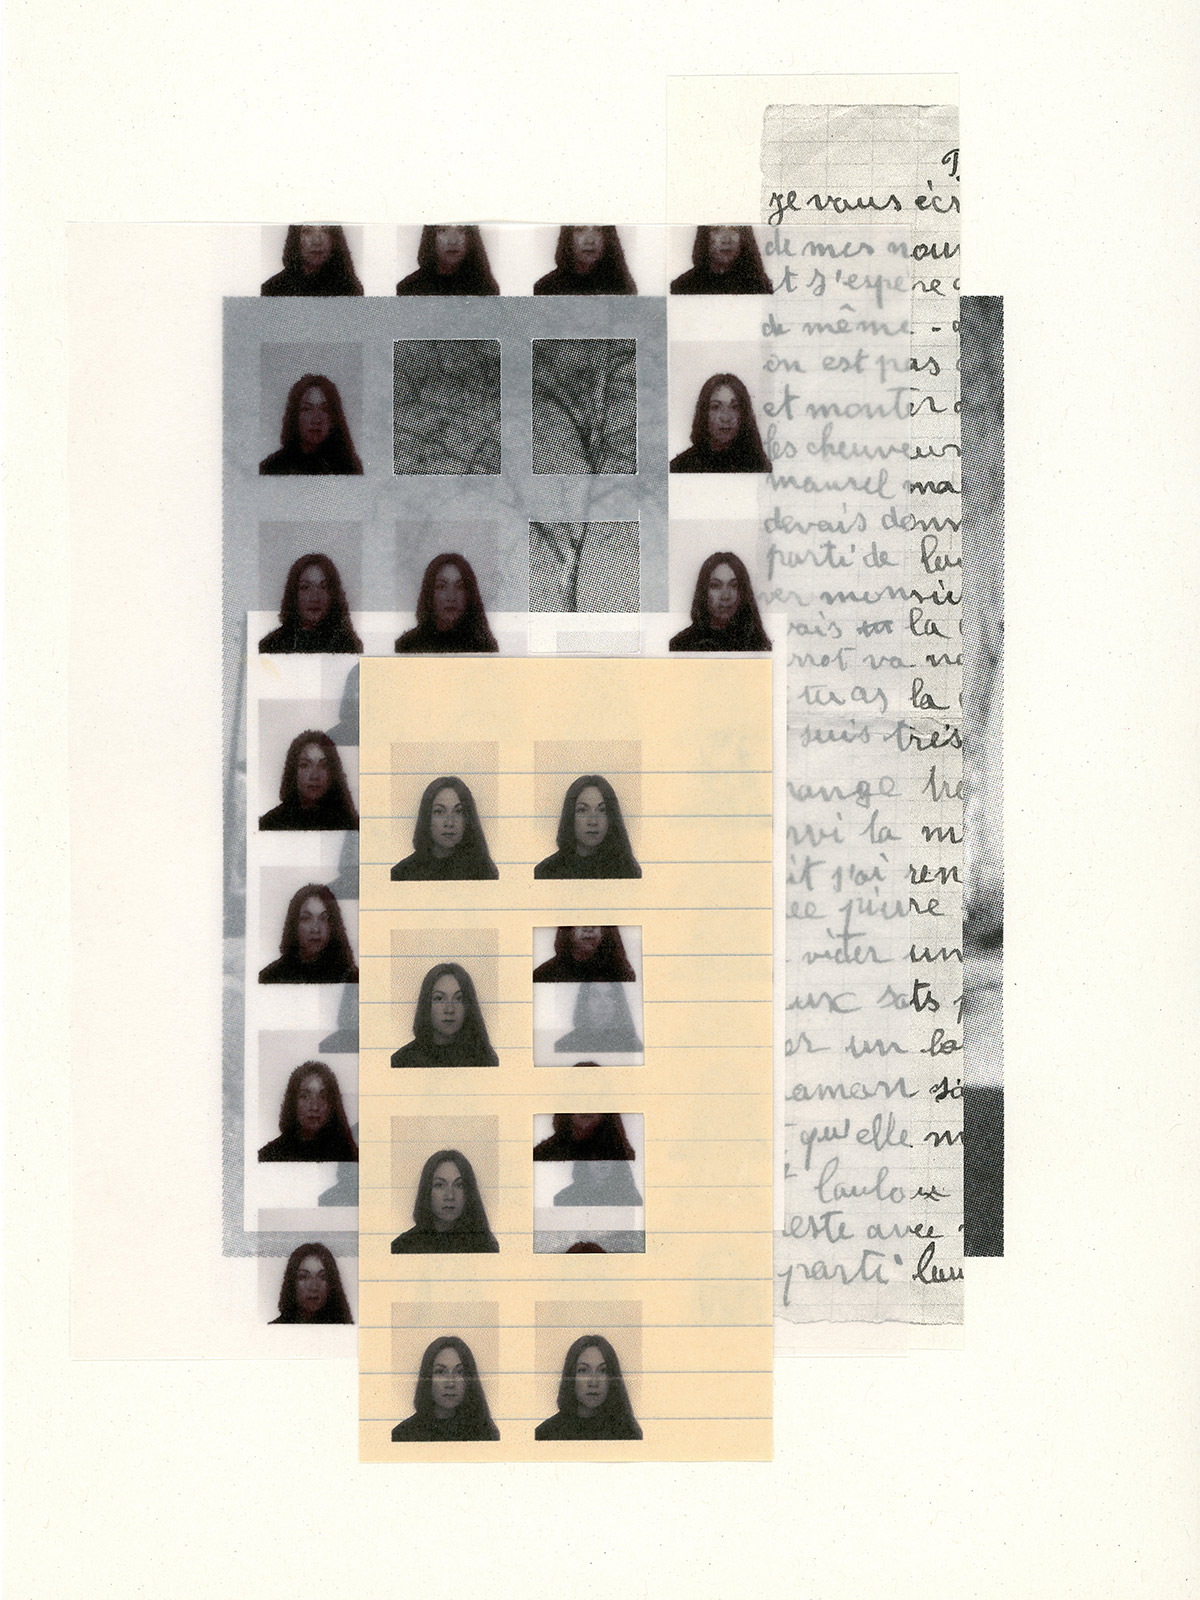 je vous écr
de mes nou
et j'espere
de même -
on est pas
et monter
les cheuveux
maurel ma
devais donn
parti de lau
ver monsie
vais la
rrot va no
tu as la
suis tres
range tre
rvi la m
it j'ai ren
ee pierre
vider un
eux sots p
er un bo
amon sa
qu'elle m
laulou
este avec
parti lau